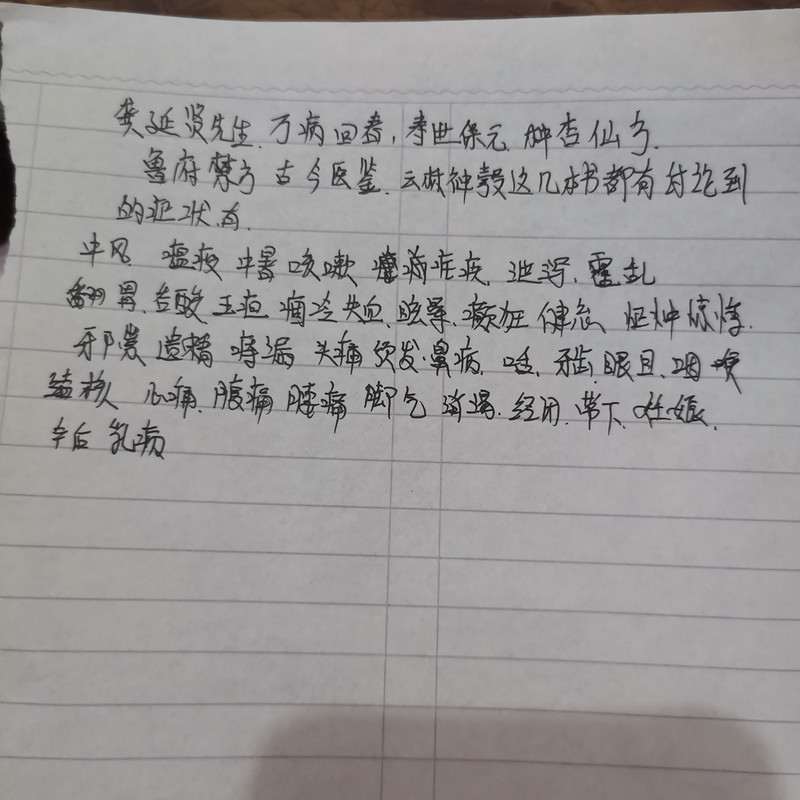 龚延贤先生.万病回春,寿世保元.种杏仙方.
鲁府禁方 古今医鉴.云林神彀这几本书都有讨论到
的症状有.
中风 瘟疫 中暑 咳嗽 疟疾.泄泻.霍乱
翻胃.吞酸 五疸 痼冷 失血.眩晕.癫狂 健忘 怔忡 惊悸.
邪祟 遗精 痔漏 头痛 须发.鼻病.牙齿.眼目.咽喉
结核 心痛.腹痛 腰痛 脚气 消渴.经闭.带下.妊娠.
产后 乳病